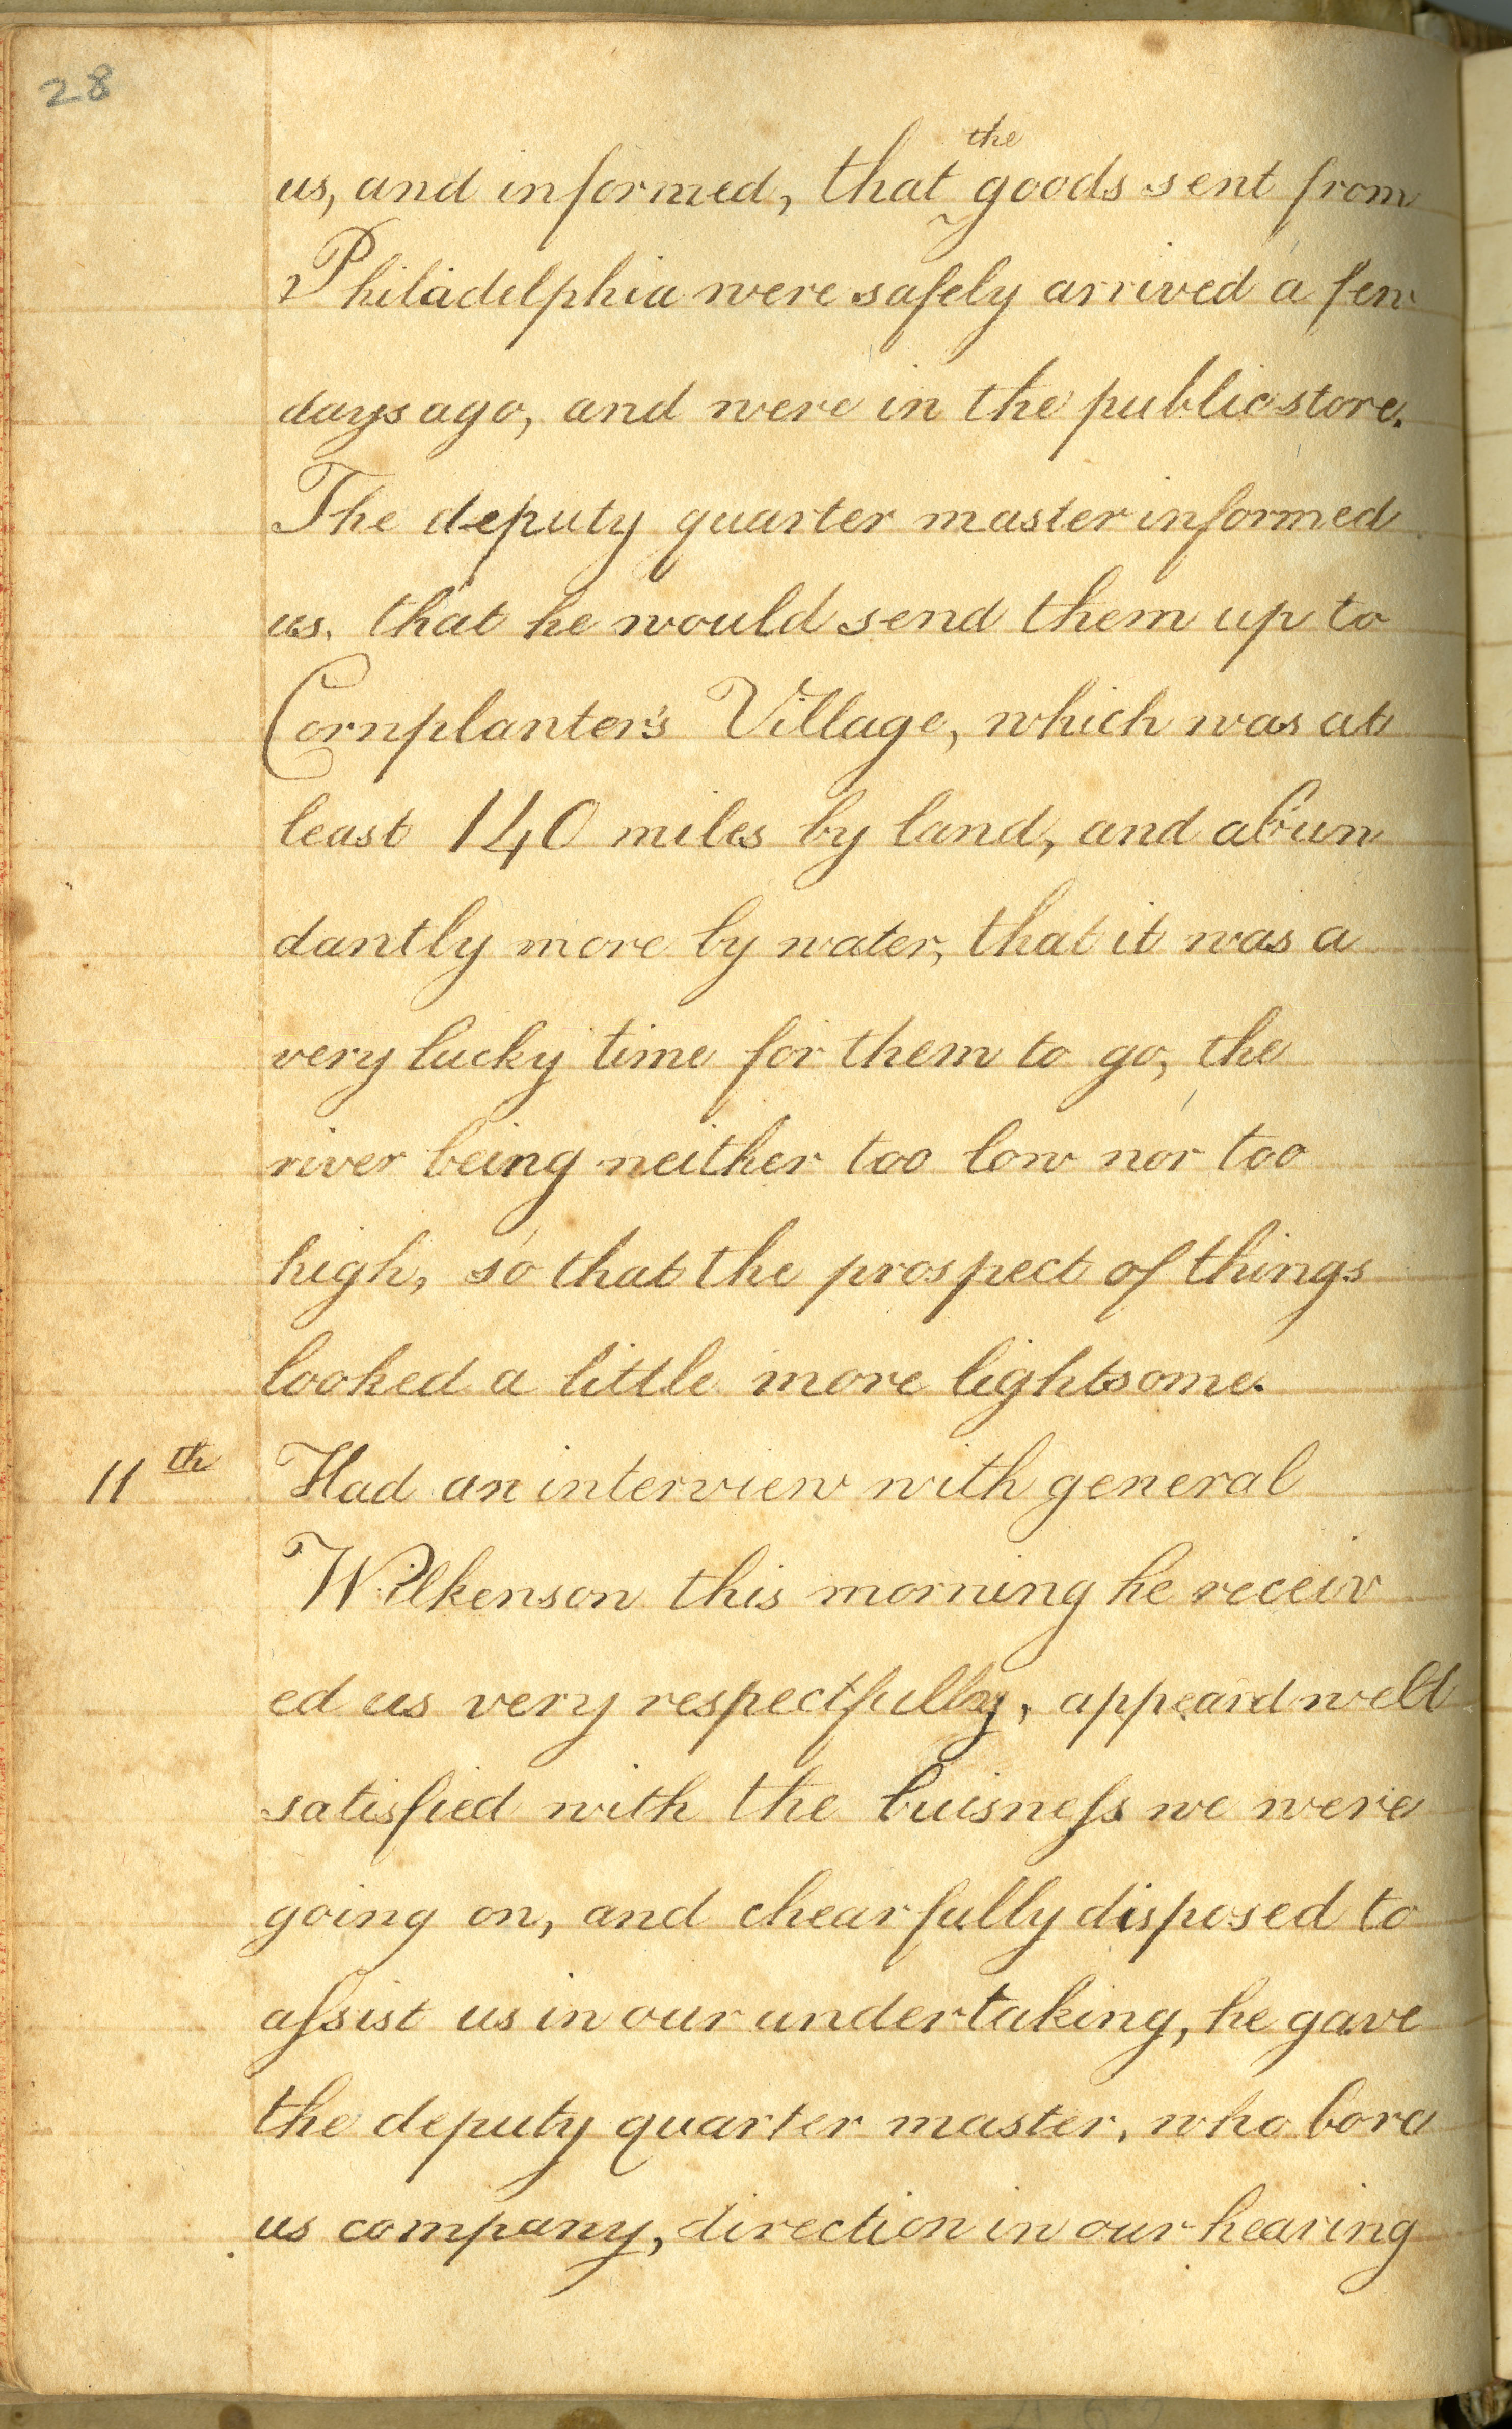 28
us, and informed, that the goods sent from
Philadelphia were safely arrived a few
days ago, and were in the public store.
The deputy quarter master informed
us, that he would send them up to
Cornplanter's Village, which was at
least 140 miles by land, and abun
dantly more by water, that it was a
very lucky time for them to go, the
river being neither too low nor too
high, so that the prospect of things
looked a little more lightsome.
11th Had an interview with general
Wilkenson this morning he receiv
ed us very respectfully, appeard well
satisfied with the buisneſs we were
going on, and chearfully disposed to
aſsist us in our undertaking, he gave
the deputy quarter master, who bore
us company, direction in our hearing